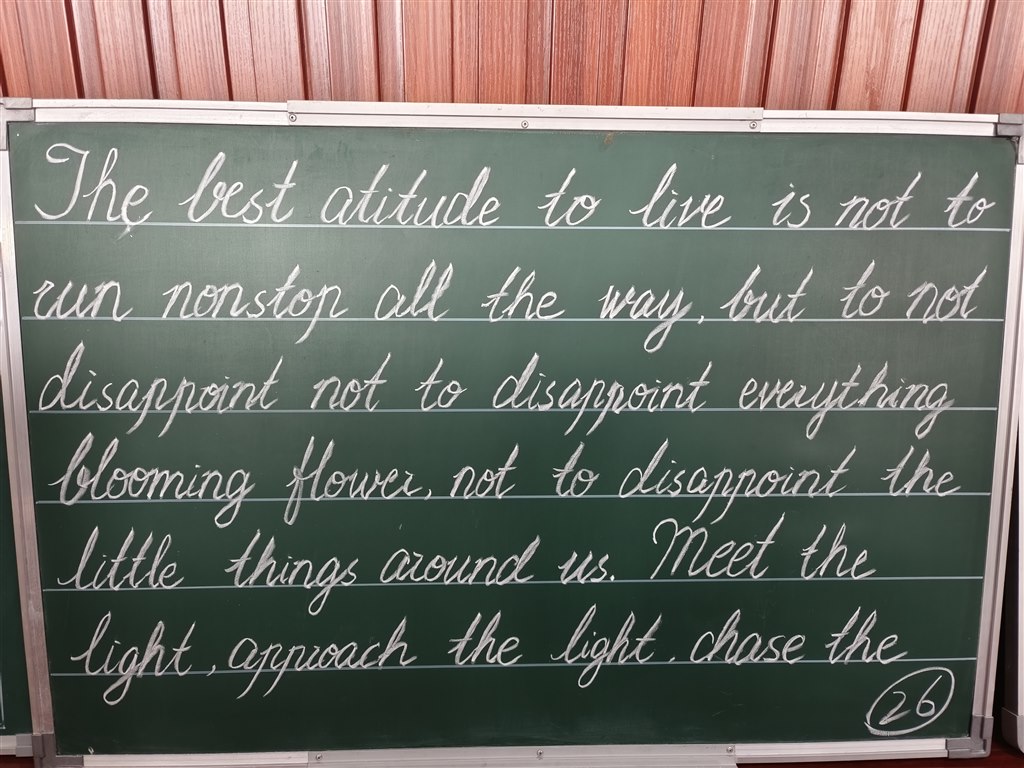 The best atitude to live is not to
run nonstop all the way, but to not
disappoint not to disappoint everything
blooming flower, not to disappoint the
little things around us. Meet the
light, approach the light, chase the
26